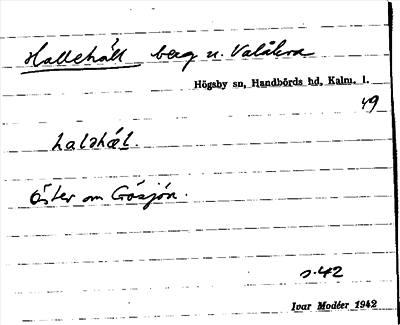 Hallehäll berg n. Valåkra
Högsby sn, Handbörds hd, Kalm. l.
49
haləhæl.
Öster om Gåsjön.
s. 42
Ivar Modéer 1942